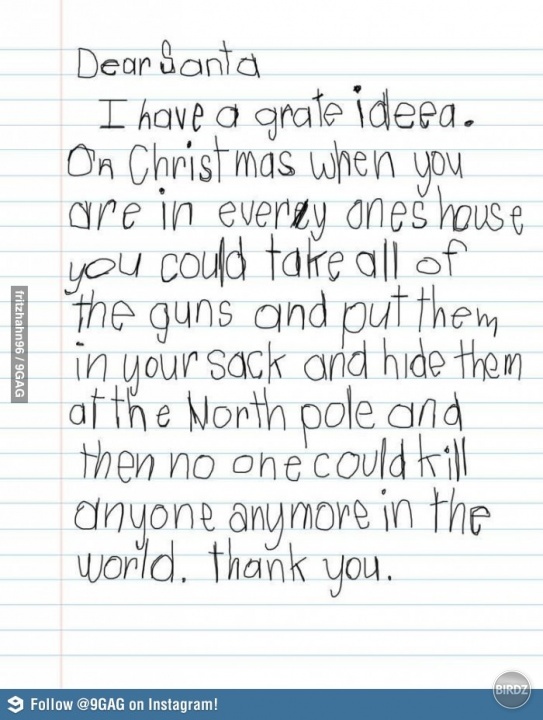 Dear Santa
I have a grate ideea.
On Christmas when you
are in everey ones house
you could take all of
the guns and put them
in your sack and hide them
at the North pole and
then no one could kill
anyone anymore in the
world. thank you.
fritzhahn96 / 9GAG
BIRDZ
Follow @9GAG on Instagram!